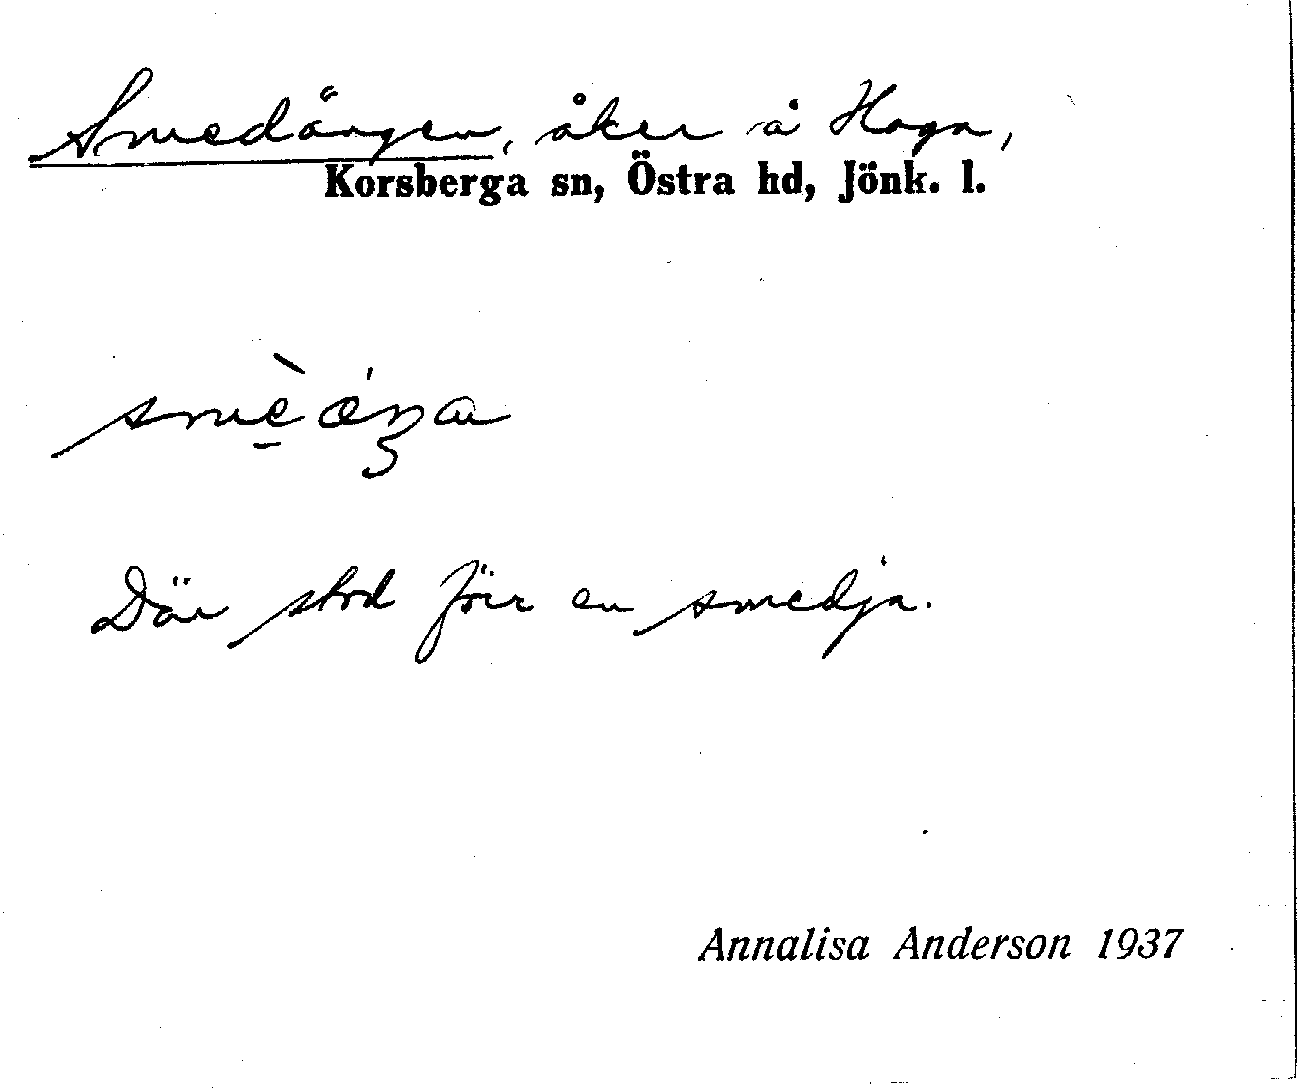 Smedängen, åker å Haga,
Korsberga sn, Östra hd, Jönk. l.
Där stod förr en smedja.
Annalisa Anderson 1937